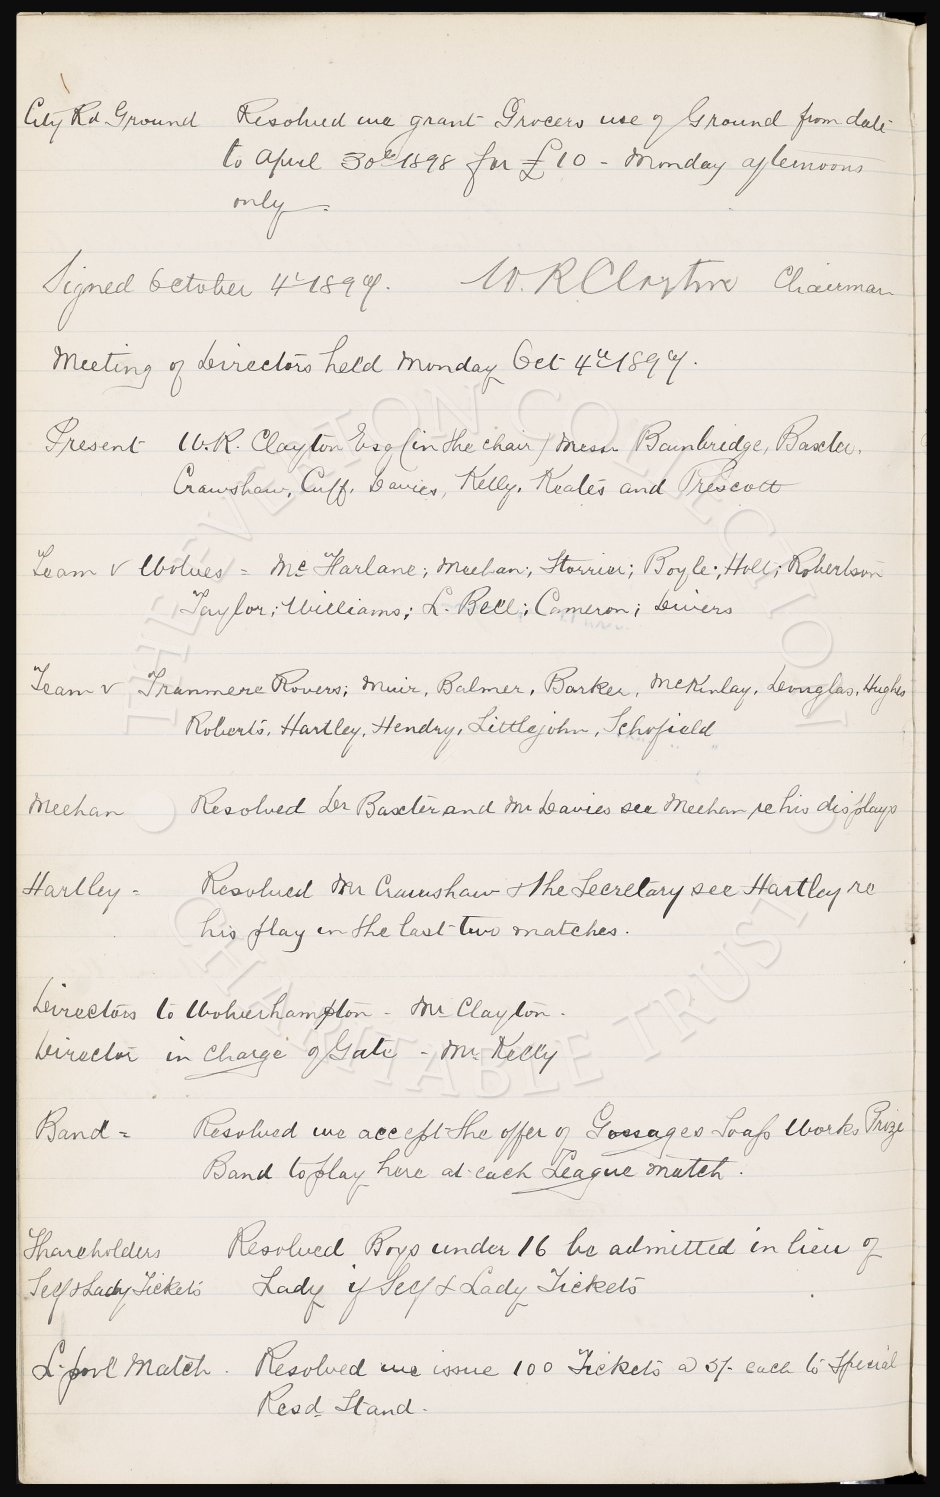 City Rd Ground Resolved we grant Grocers use of Ground from date
to April 30th 1898 for £10 - Monday afternoons
only.
Signed October 4th 1897. W. R Clayton Chairman
Meeting of Directors held Monday Oct 4th 1897.
Present W.R. Clayton Esq (in the chair) Messrs Bainbridge, Baxter,
Crawshaw, Cuff, Davies, Kelly, Keates and Prescott
Team v Wolves = McFarlane; Meehan; Storrier; Boyle; Holt; Robertson
Taylor; Williams; L. Bell; Cameron; Divers
Team v Tranmere Rovers; Muir, Balmer, Barker, McKinlay, Douglas, Hughes
Roberts, Hartley, Hendry, Littlejohn, Schofield
Meehan Resolved Dr Baxter and Mr Davies see Meehan re his displays
Hartley - Resolved Mr Crawshaw & the Secretary see Hartley re
his play in the last two matches.
Directors to Wolverhampton - Mr Clayton -
Director in charge of Gate - Mr Kelly
Band = Resolved we accept the offer of Gossages Soap Works Prize
Band to play here at each League match.
Shareholders Resolved Boys under 16 be admitted in lieu of
Self & Lady Tickets Lady if Self & Lady Tickets
L.pool Match - Resolved we issue 100 Tickets @ 3/- each to Special
Resd Stand.
THE EVERTON COLLECTION
CHARITABLE TRUST